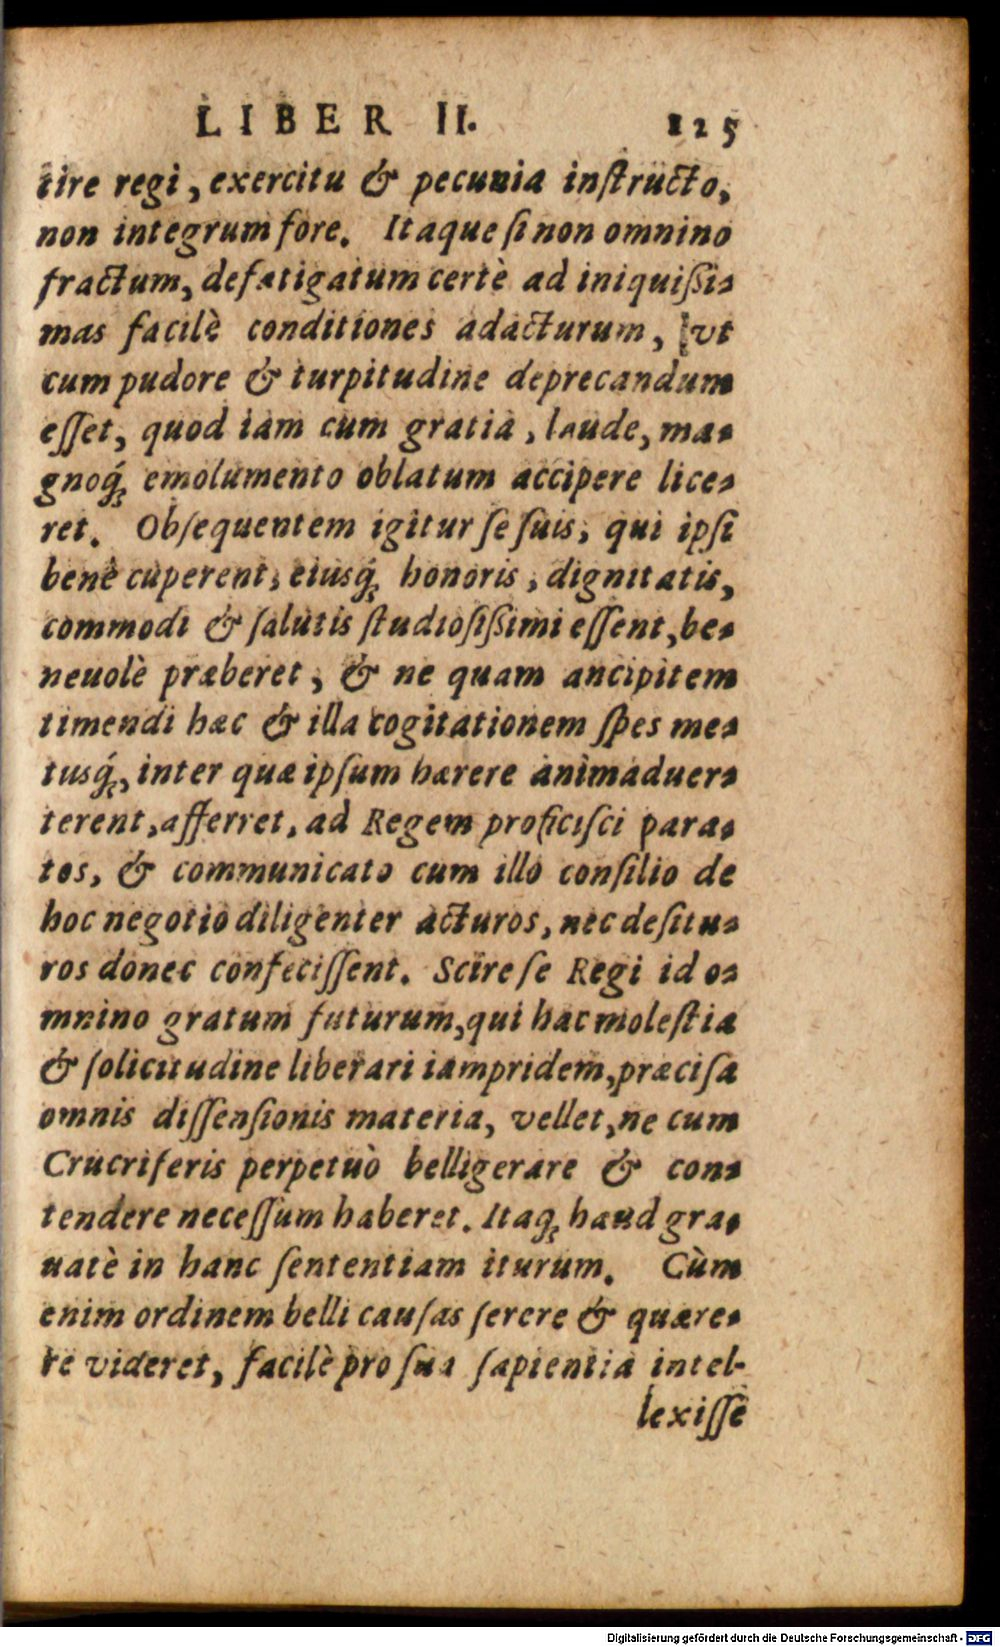 LIBER II. 125
tire regi, exercitu & pecunia inſtructo,
non integrum fore. Itaque ſi non omnino
fractum, defatigatum certè ad iniquiſsi-
mas facilè conditiones adacturum, vt
cum pudore & turpitudine deprecandum
eſſet, quod iam cum gratia, laude, ma-
gnoq́ꝫ emolumento oblatum accipere lice-
ret. Obſequentem igitur ſe ſuis, qui ipſi
benè cuperent, eiusq́ꝫ honoris, dignitatis,
commodi & ſalutis ſtudioſiſsimi eſſent, be-
neuolè præberet, & ne quam ancipitem
timendi hæc & illa cogitationem ſpes me-
tusq́ꝫ, inter quæ ipſum hærere animaduer-
terent, afferret, ad Regem proficiſci para-
tos, & communicato cum illo conſilio de
hoc negotio diligenter acturos, nec deſitu-
ros donec confeciſſent. Scire ſe Regi id o-
mnino gratum futurum, qui hac moleſtia
& ſolicitudine liberari iampridem, præciſa
omnis diſſenſionis materia, vellet, ne cum
Crucriferis perpetuò belligerare & con-
tendere neceſſum haberet. Itaqꝫ haud gra-
uatè in hanc ſententiam iturum. Cùm
enim ordinem belli cauſas ſerere & quære-
re videret, facilè pro ſua ſapientia intel-
lexiſſe
Digitalisierung gefördert durch die Deutsche Forschungsgemeinschaft - DFG